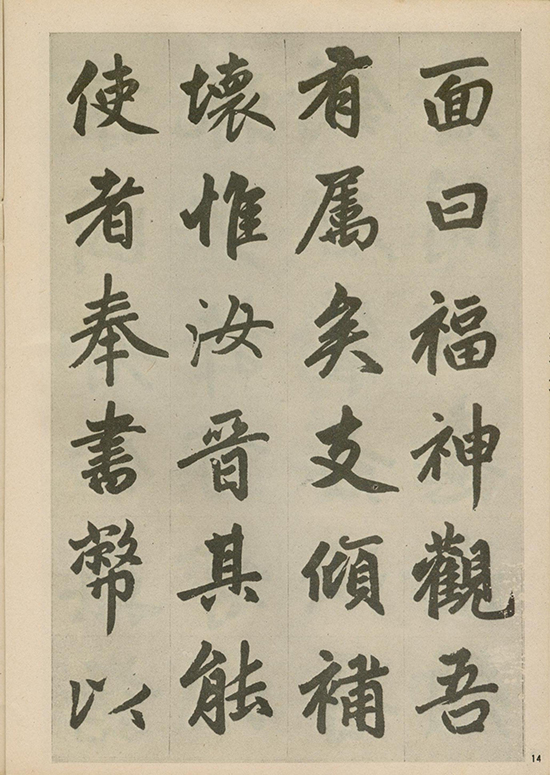 面曰福神觀吾
有属矣支傾補
壊惟汝晉其能
使者奉書幣以
14